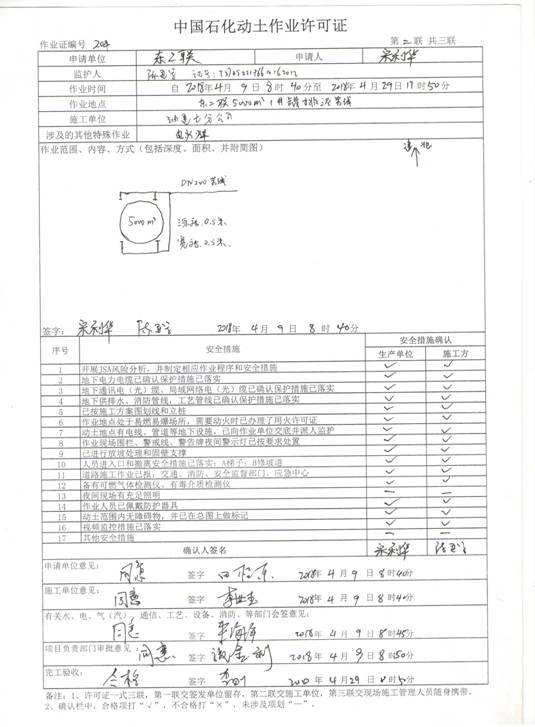 中国石化动土作业许可证
作业证编号 204 第二联 共三联
申请单位 东二联 申请人 宋利华
监护人
作业时间 自 2018年4月9日8时40分至2018年4月29日17时50分
作业地点 东二联5000m³
施工单位
涉及的其他特殊作业
作业范围、内容、方式（包括深度、面积、并附简图）
DN200
5000m³
深挖0.5米
宽挖0.5米
签字： 宋利华 2018年4月9日8时40分
序号 安全措施 安全措施确认
生产单位 施工方
1 开展JSA风险分析，并制定相应作业程序和安全措施 ✓ ✓
2 地下电力电缆已确认保护措施已落实 ✓ ✓
3 地下通讯电（光）缆、局域网络电（光）缆已确认保护措施已落实 ✓ ✓
4 地下供排水、消防管线、工艺管线已确认保护措施已落实 ✓ ✓
5 已按施工方案图划线和立桩 ✓ ✓
6 作业地点处于易燃易爆场所，需要动火时已办理了用火许可证 ✓ ✓
7 动土地点有电线、管道等地下设施，已向作业单位交底并派人监护 ✓ ✓
8 作业现场围栏、警戒线、警告牌夜间警示灯已按要求处置 ✓ ✓
9 已进行放坡处理和固壁支撑 ✓ ✓
10 人员进入口和撤离安全措施已落实：A梯子；B修坡道 ✓ ✓
11 道路施工作业已报：交通、消防、安全监督部门、应急中心 ✓ ✓
12 备有可燃气体检测仪、有毒介质检测仪 ✓ ✓
13 夜间现场有充足照明 — —
14 作业人员已佩戴防护器具 ✓ ✓
15 动土范围内无障碍物，并已在总图上做标记 ✓ ✓
16 视频监控措施已落实 ✓ ✓
17 其他安全措施 — —
确认人签名 宋利华
申请单位意见： 同意 签字 2018年4月9日8时40分
施工单位意见： 同意 签字 2018年4月9日8时40分
有关水、电、气（汽）、通信、工艺、设备、消防、等部门会签意见：
同意 签字 2018年4月9日8时45分
项目负责部门审批意见： 同意 签字 2018年4月9日8时50分
完工验收： 合格 签字 年4月29日 时50分
备注：1、许可证一式三联，第一联交签发单位留存，第二联交施工单位，第三联交现场施工管理人员随身携带。
2、确认栏中，合格项打“√”，不合格打“×”，未涉及项划“—”。